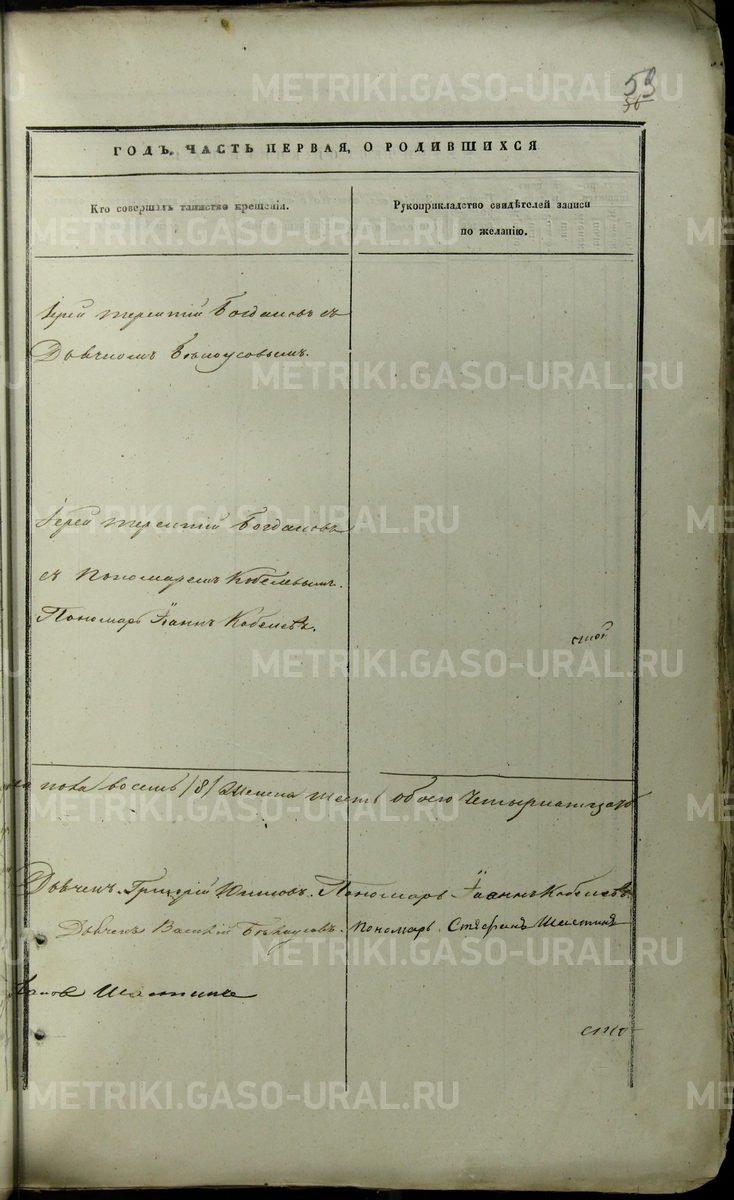 59
56
ГОДЪ, ЧАСТЬ ПЕРВАЯ, О РОДИВШИХСЯ
Кто совершалъ таинство крещенія.
Рукоприкладство свидѣтелей записи
по желанію.
Іерей Терентій Богдановъ съ
Дьячкомъ Бѣлоусовымъ.
Іерей Терентій Богдановъ
съ Пономаремъ Кобелевымъ.
Пономарь Іоаннъ Кобелевъ.
пола восемь /8/ Женска шесть обоего Четырнатцать
Дьячекъ Григорій Поповъ. Пономарь Іоаннъ Кобелевъ
Дьячекъ Василій Бѣлоусовъ. Пономарь Стефанъ
METRIKI.GASO-URAL.RU